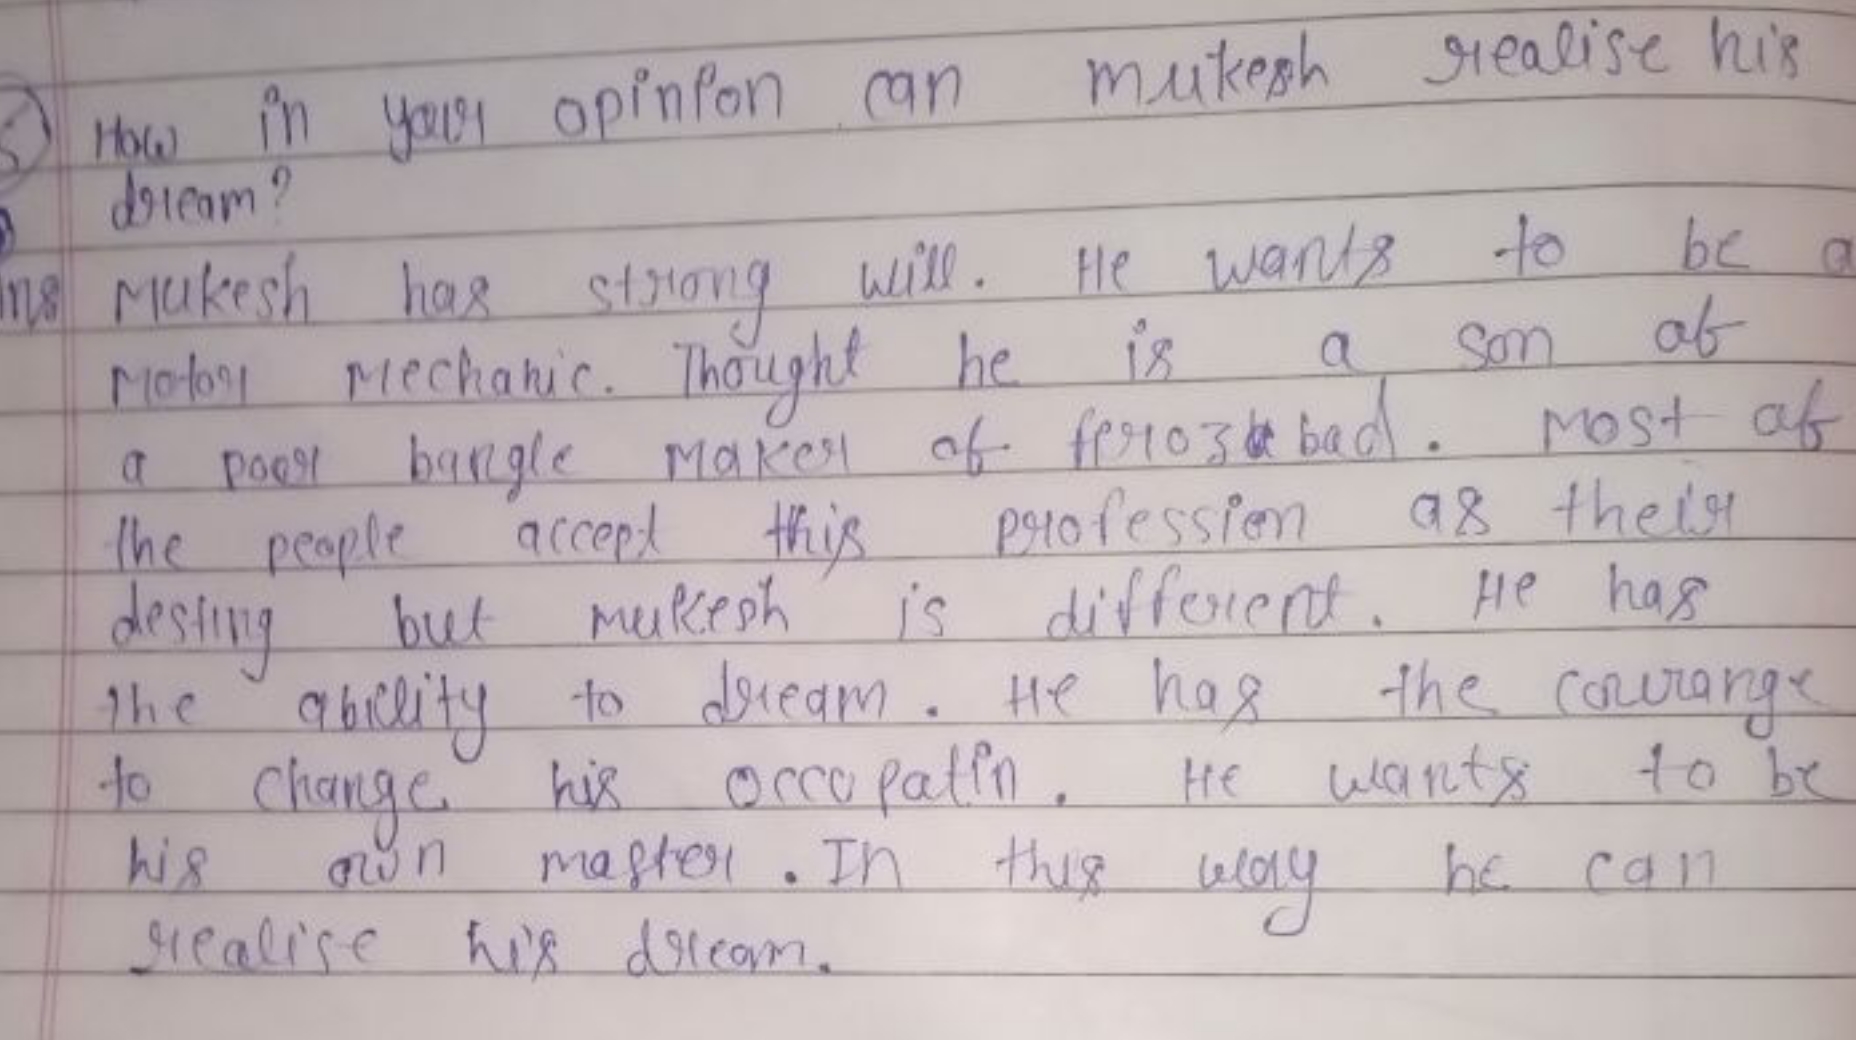 5 How in your opinion can mukesh realise his
dream?
Ans Mukesh has strong will. He wants to be a
Motor Mechanic. Thought he is a son of
a poor bangle Maker of firozabad. Most of
the people accept this profession as their
destiny but mukesh is different. He has
the ability to dream. He has the courange
to change his occupatin. He wants to be
his own master. In this way he can
realise his dream.